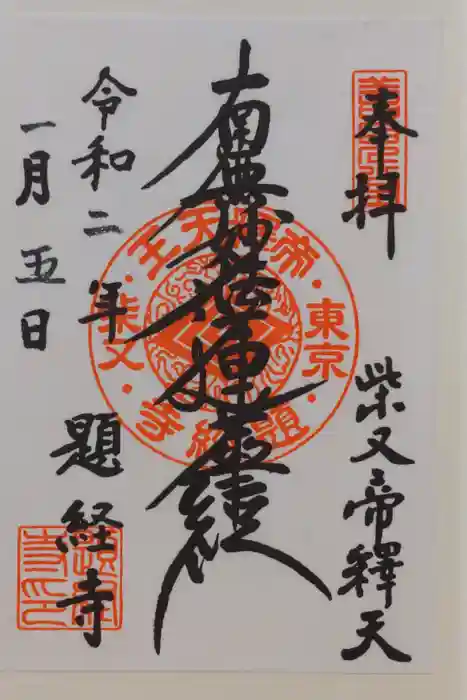 奉拝
柴又帝釋天
南無妙法蓮華経
令和二年
一月五日
題経寺
帝釈天王
東京
柴又
題経寺